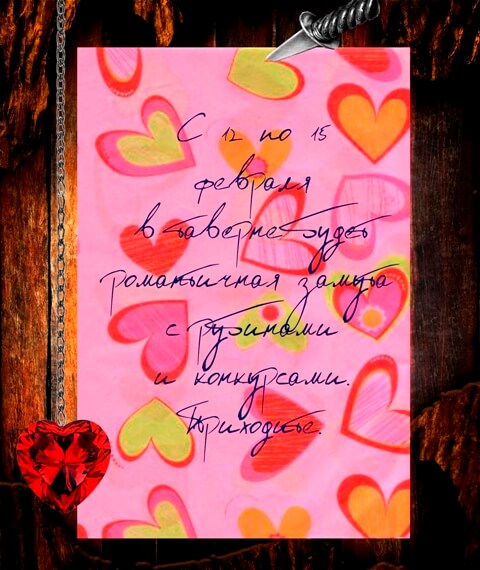 С 12 по 15
февраля
в таверне будет
романтичная замута
с рубинами
и конкурсами.
Приходите.